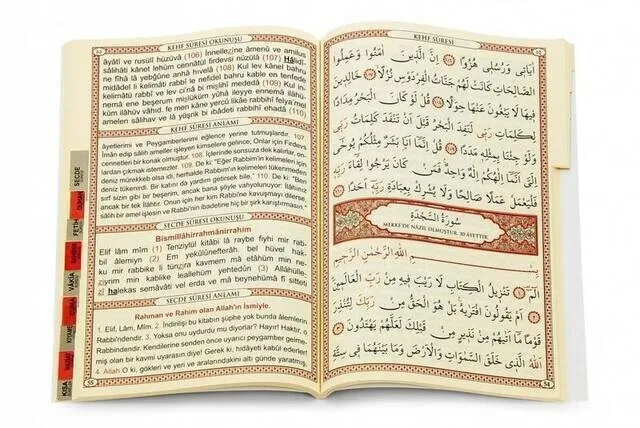 KEHF SÛRESİ
اٰيَات۪ي وَرُسُل۪ي هُزُوًا ﴿١٠٦﴾ اِنَّ الَّذ۪ينَ اٰمَنُوا وَعَمِلُوا
الصَّالِحَاتِ كَانَتْ لَهُمْ جَنَّاتُ الْفِرْدَوْسِ نُزُلًا ﴿١٠٧﴾ خَالِد۪ينَ
ف۪يهَا لَا يَبْغُونَ عَنْهَا حِوَلًا ﴿١٠٨﴾ قُلْ لَوْ كَانَ الْبَحْرُ مِدَادًا
لِكَلِمَاتِ رَبّ۪ي لَنَفِدَ الْبَحْرُ قَبْلَ اَنْ تَنْفَدَ كَلِمَاتُ رَبّ۪ي
وَلَوْ جِئْنَا بِمِثْلِه۪ مَدَدًا ﴿١٠٩﴾ قُلْ اِنَّمَا اَنَا بَشَرٌ مِثْلُكُمْ يُوحٰى
اِلَيَّ اَنَّمَا اِلٰهُكُمْ اِلٰهٌ وَاحِدٌ فَمَنْ كَانَ يَرْجُوا لِقَاءَ رَبِّه۪
فَلْيَعْمَلْ عَمَلًا صَالِحًا وَلَا يُشْرِكْ بِعِبَادَةِ رَبِّه۪ٓ اَحَدًا ﴿١١٠﴾
سُورَةُ السَّجْدَةِ
MEKKE'DE NÂZİL OLMUŞTUR. 30 ÂYETTİR.
بِسْمِ اللّٰهِ الرَّحْمٰنِ الرَّح۪يمِ
الٓمٓ ﴿١﴾ تَنْز۪يلُ الْكِتَابِ لَا رَيْبَ ف۪يهِ مِنْ رَبِّ الْعَالَم۪ينَ
﴿٢﴾ اَمْ يَقُولُونَ افْتَرٰيهُ بَلْ هُوَ الْحَقُّ مِنْ رَبِّكَ لِتُنْذِرَ
قَوْمًا مَٓا اَتٰيهُمْ مِنْ نَذ۪يرٍ مِنْ قَبْلِكَ لَعَلَّهُمْ يَهْتَدُونَ ﴿٣﴾
اَللّٰهُ الَّذ۪ي خَلَقَ السَّمٰوَاتِ وَالْاَرْضَ وَمَا بَيْنَهُمَا ف۪ي سِتَّةِ
54
KEHF SÛRESİ OKUNUŞU
âyâtî ve rusulî hüzüvâ (106) İnnellezîne âmenû ve amilus
sâlihâti kânet lehüm cennâtül firdevsi nüzülâ (107) Hâlidî
ne fîhâ lâ yebğûne anhâ hıvelâ (108) Kul lev kânel bahru
midâdel li kelimâti rabbî le nefidel bahru kable en tenfede
kelimâtü rabbî ve lev ci'nâ bi mislihî mededâ (109) Kul
innemâ ene beşerum mislüküm yûhâ ileyye ennemâ ilâhü
küm ilâhüv vâhıd. fe men kâne yercû likâe rabbihî felya'mel
amelen sâlihav ve lâ yüşrik bi ıbâdeti rabbihî ehadâ (110)
KEHF SÛRESİ ANLAMI
âyetlerimi ve Peygamberlerimi eğlence yerine tutmuşlardır. 107.
İman edip salih ameller işleyen kimselere gelince; Onlar için Firdevs
cennetleri bir konak olmuştur. 108. İçlerinde sonsuza dek kalırlar, on-
lardan çıkmak istemezler. 109. De ki: "Eğer Rabbim'in kelimeleri için
deniz mürekkeb olsa idi, herhalde Rabbim'in kelimeleri tükenmeden
deniz tükenirdi. Bir katını da yardım getirsek bile." 110. De ki: "Ben
sırf sizin gibi bir beşerim, ancak bana şöyle vahyolunuyor: İlâhınız
ancak bir tek İlâhtır. Onun için her kim Rabb'ine kavuşmayı dilerse,
salih bir amel işlesin ve Rabb'inin ibadetine hiç bir şirk karıştırmasın."
SECDE SÛRESİ OKUNUŞU
Bismillâhirrahmânirrahim
Elif lâm mîm (1) Tenzîylül kitâbi lâ raybe fîyhi mir rab-
bil âlemîyn (2) Em yekûlûnefterâh, bel hüvel hak-
ku mir rabbike li tünzira kavmem mâ etâhüm min ne-
zîyrim min kablike leallehüm yehtedûn (3) Allâhülle-
zîy halekas semâvâti vel erda ve mâ beynehümâ fîy sitteti
SECDE SÛRESİ ANLAMI
Rahman ve Rahim olan Allah'ın İsmiyle.
1. Elif, Lâm, Mîm. 2. İndirilişi bu kitabın şüphe yok bunda âlemlerin
Rabbi'ndendir. 3. Yoksa onu uydurdu mu diyorlar? Hayır! Haktır, o
Rabbi'ndendir. Kendilerine senden önce uyarıcı peygamber gelme-
miş olan bir kavmi uyarasın diye! Gerek ki, hidâyeti kabûl ederler!
4. Allah O ki, gökleri ve yeri ve aralarındakini altı günde yaratmış,
55
SECDE
DUHAN
FETİH
VÂKIA
CUMA
KISA